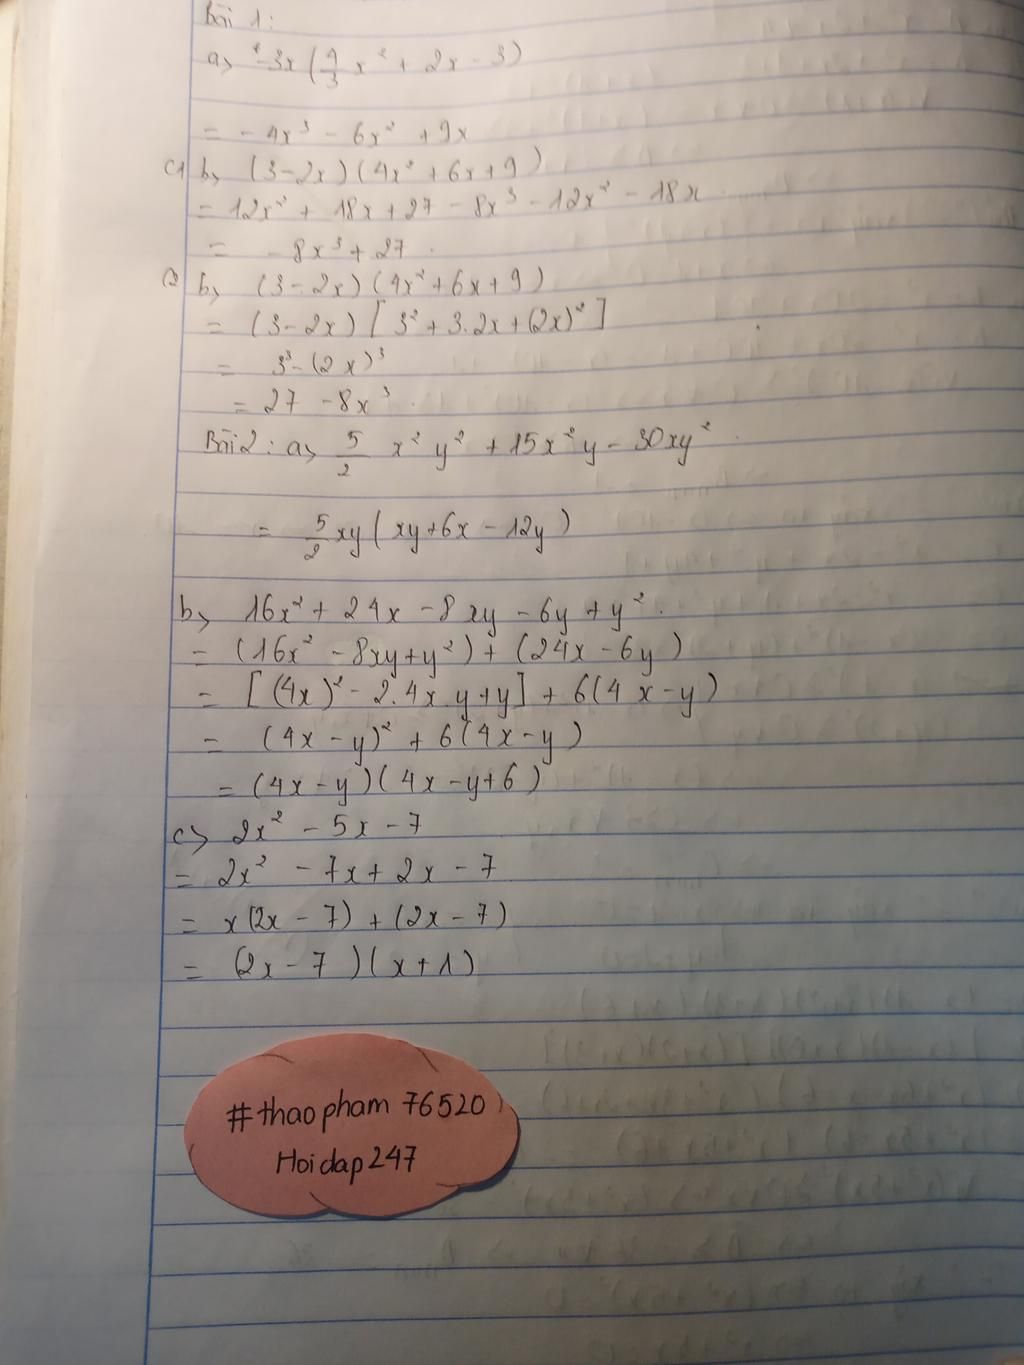 Bài 1:
a> -3x(4/3 x² + 2x - 3)
= -4x³ - 6x² + 9x
C1 b> (3-2x)(4x² + 6x + 9)
= 12x² + 18x + 27 - 8x³ - 12x² - 18x
= -8x³ + 27.
C2 b> (3-2x)(4x² + 6x + 9)
= (3-2x)[3² + 3.2x + (2x)²]
= 3³ - (2x)³
= 27 - 8x³.
Bài 2: a> 5/2 x² y² + 15x²y - 30xy².
= 5/2 xy(xy + 6x - 12y)
b> 16x² + 24x - 8xy - 6y + y².
= (16x² - 8xy + y²) + (24x - 6y)
= [(4x)² - 2.4x.y + y] + 6(4x - y)
= (4x - y)² + 6(4x - y)
= (4x - y)(4x - y + 6)
c> 2x² - 5x - 7
= 2x² - 7x + 2x - 7
= x(2x - 7) + (2x - 7)
= (2x - 7)(x + 1)
#thaopham 76520
Hoidap247